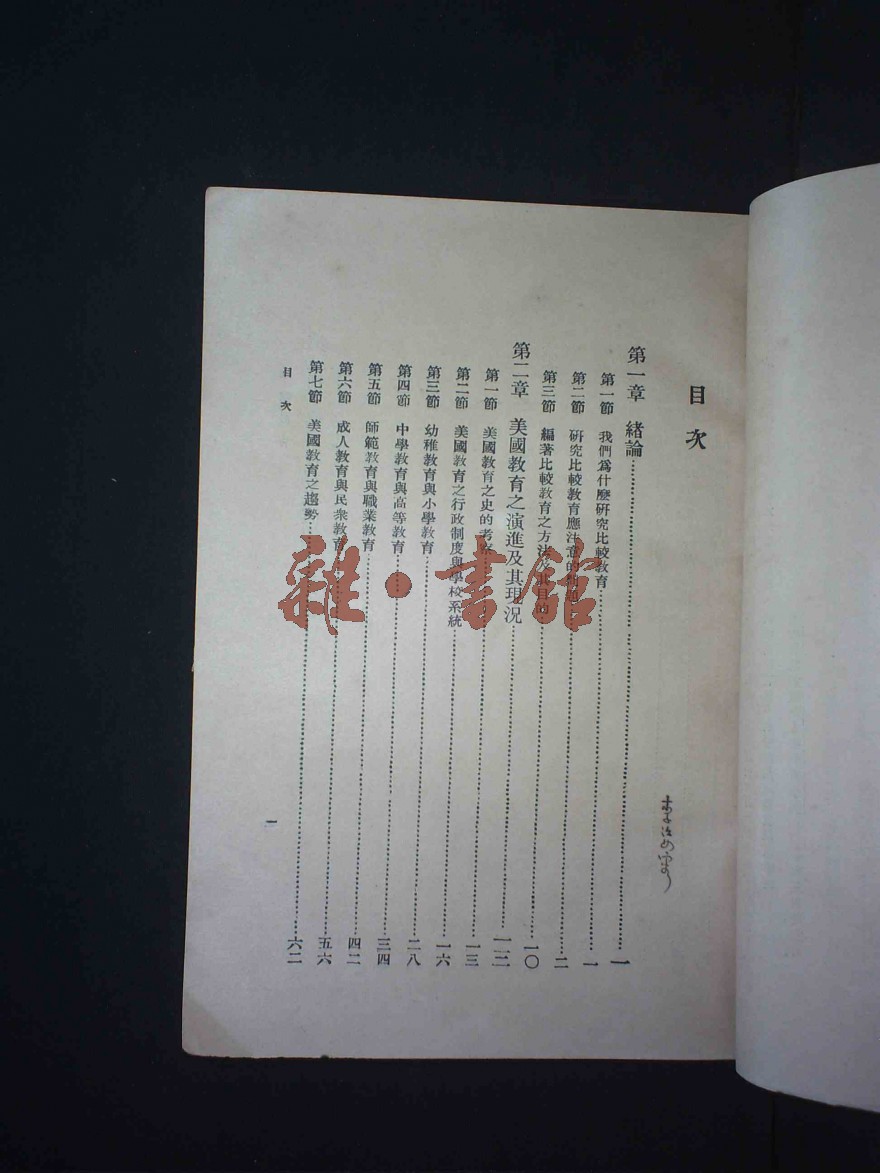 目次
第一章 緒論……一
第一節 我們爲什麼研究比較教育……一
第二節 研究比較教育應注意的……二
第三節 編著比較教育之方法及其目的……一〇
第二章 美國教育之演進及其現況……一二
第一節 美國教育之史的考察……一三
第二節 美國教育之行政制度與學校系統……一六
第三節 幼稚教育與小學教育……二八
第四節 中學教育與高等教育……三四
第五節 師範教育與職業教育……四二
第六節 成人教育與民衆教育……五六
第七節 美國教育之趨勢……六二
目次
一
雜·書館